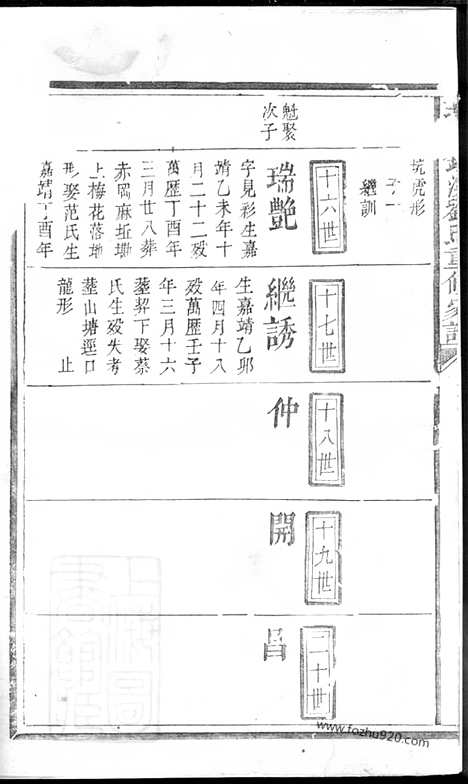 坑虎形
子一
繼訓
十六世
魁聚
次子
瑞艷
字見彩生嘉
靖乙未年十
月二十二歿
萬歷丁酉年
三月廿八葬
赤岡麻坵塅
上梅花落地
形娶范氏生
嘉靖丁酉年
十七世
繼誘
生嘉靖乙卯
年四月十八
歿萬歷壬子
年三月十六
葬契下娶蔡
氏生歿失考
葬山塘逕口
龍形 止
十八世
仲
十九世
開
二十世
昌
劉氏重修家譜
www.fozhu920.com